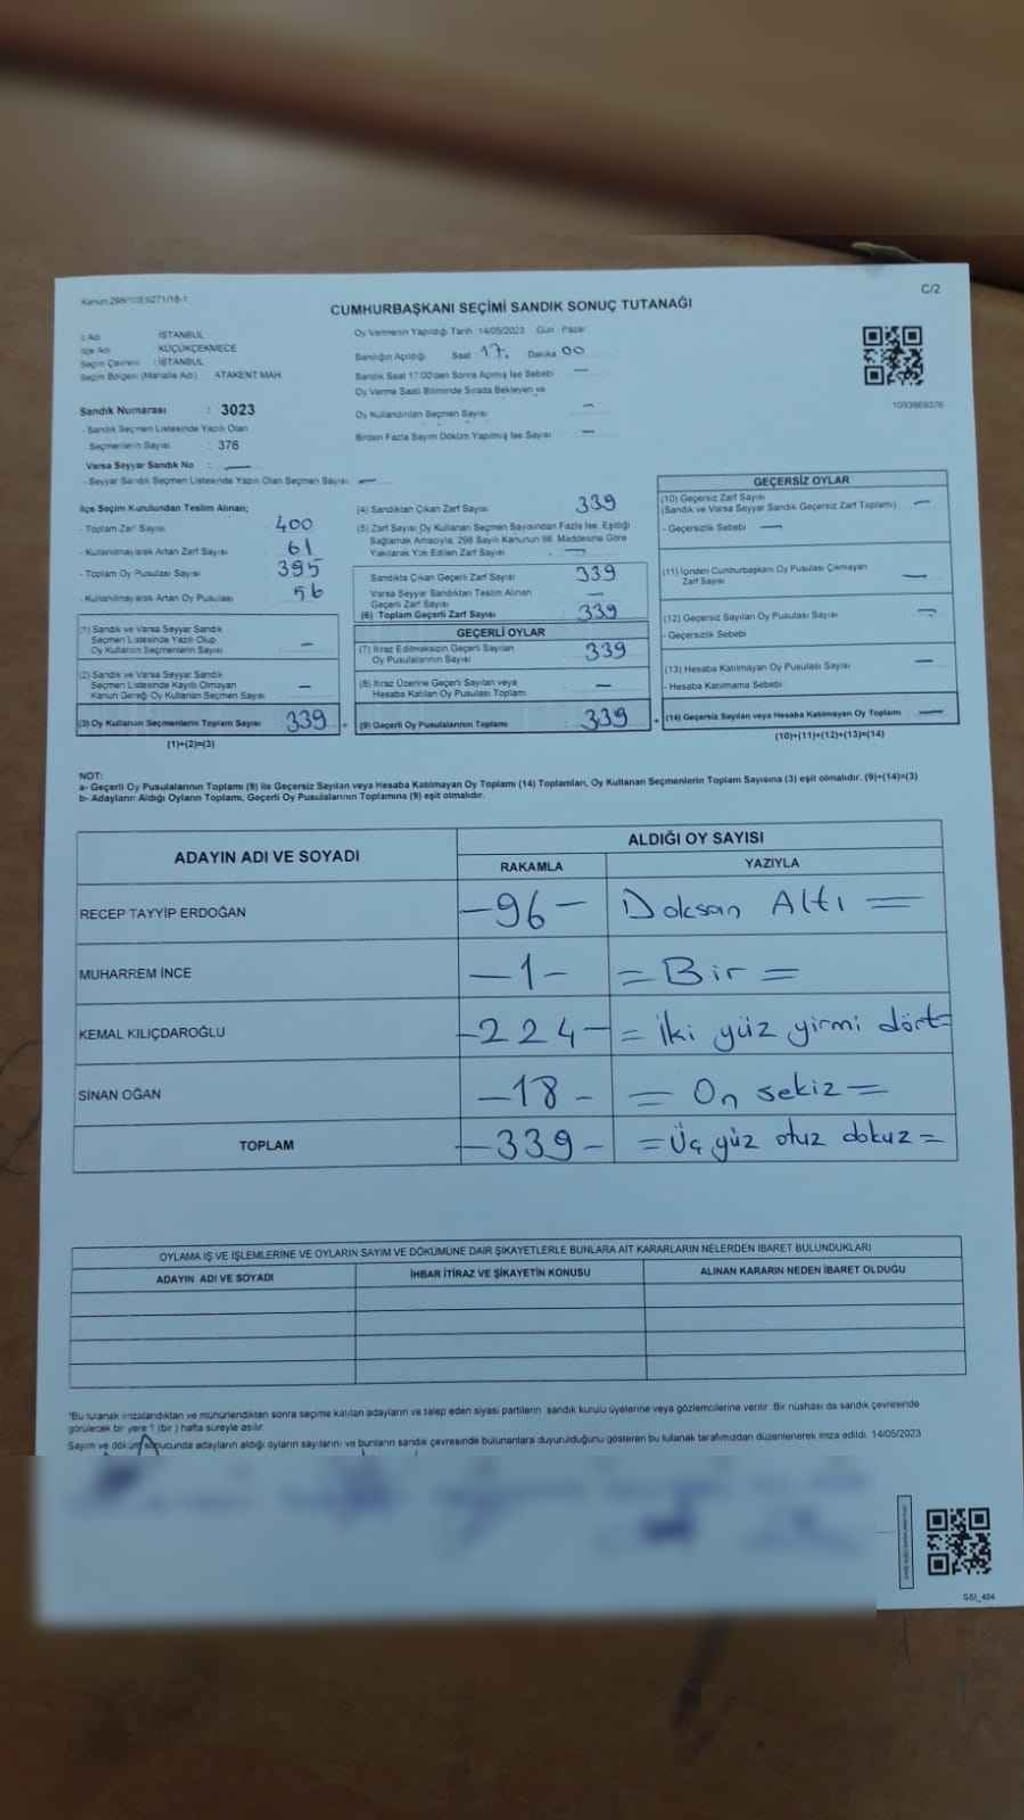 C/2
CUMHURBAŞKANI SEÇİMİ SANDIK SONUÇ TUTANAĞI
İSTANBUL
KÜÇÜKÇEKMECE
İSTANBUL
Seçim Bölgesi (Mahalle Adı) ATAKENT MAH.
Sandık Numarası : 3023
- Sandık Seçmen Listesinde Yazılı Olan
Seçmenlerin Sayısı : 376
Varsa Seyyar Sandık No : —
- Seyyar Sandık Seçmen Listesinde Yazılı Olan Seçmen Sayısı —
Oy Vermenin Yapıldığı Tarih 14/05/2023 Gün : Pazar
Sandığın Açıldığı Saat 17. Dakika 00
Sandık Saat 17:00'den Sonra Açılmış İse Sebebi —
Oy Verme Saati Bitiminde Sırada Bekleyen ve
Oy Kullandırılan Seçmen Sayısı —
Birden Fazla Sayım Döküm Yapılmış İse Sayısı —
İlçe Seçim Kurulundan Teslim Alınan;
- Toplam Zarf Sayısı 400
- Kullanılmayarak Artan Zarf Sayısı 61
- Toplam Oy Pusulası Sayısı 395
- Kullanılmayarak Artan Oy Pusulası 56
(1) Sandık ve Varsa Seyyar Sandık
Seçmen Listesinde Yazılı Olup
Oy Kullanan Seçmenlerin Sayısı —
(2) Sandık ve Varsa Seyyar Sandık
Seçmen Listesinde Kayıtlı Olmayan
Kanun Gereği Oy Kullanan Seçmen Sayısı —
(3) Oy Kullanan Seçmenlerin Toplam Sayısı 339
(1)+(2)=(3)
(4) Sandıktan Çıkan Zarf Sayısı 339
(5) Zarf Sayısı Oy Kullanan Seçmen Sayısından Fazla İse, Eşitliği
Sağlamak Amacıyla, 298 Sayılı Kanunun 98. Maddesine Göre
Yakılarak Yok Edilen Zarf Sayısı —
Sandıkta Çıkan Geçerli Zarf Sayısı 339
Varsa Seyyar Sandıktan Teslim Alınan
Geçerli Zarf Sayısı —
(6) Toplam Geçerli Zarf Sayısı 339
GEÇERLİ OYLAR
(7) İtiraz Edilmeksizin Geçerli Sayılan
Oy Pusulalarının Sayısı 339
(8) İtiraz Üzerine Geçerli Sayılan veya
Hesaba Katılan Oy Pusulası Toplamı —
(9) Geçerli Oy Pusulalarının Toplamı 339
GEÇERSİZ OYLAR
(10) Geçersiz Zarf Sayısı
(Sandık ve Varsa Seyyar Sandık Geçersiz Zarf Toplamı) —
- Geçersizlik Sebebi —
(11) İçinden Cumhurbaşkanı Oy Pusulası Çıkmayan
Zarf Sayısı —
(12) Geçersiz Sayılan Oy Pusulası Sayısı —
- Geçersizlik Sebebi
(13) Hesaba Katılmayan Oy Pusulası Sayısı —
- Hesaba Katılmama Sebebi
(14) Geçersiz Sayılan veya Hesaba Katılmayan Oy Toplamı —
(10)+(11)+(12)+(13)=(14)
NOT:
a- Geçerli Oy Pusulalarının Toplamı (9) ile Geçersiz Sayılan veya Hesaba Katılmayan Oy Toplamı (14) Toplamları, Oy Kullanan Seçmenlerin Toplam Sayısına (3) eşit olmalıdır. (9)+(14)=(3)
b- Adayların Aldığı Oyların Toplamı, Geçerli Oy Pusulalarının Toplamına (9) eşit olmalıdır.
ADAYIN ADI VE SOYADI
ALDIĞI OY SAYISI
RAKAMLA YAZIYLA
RECEP TAYYİP ERDOĞAN -96- Doksan Altı =
MUHARREM İNCE -1- = Bir =
KEMAL KILIÇDAROĞLU -224- = İki yüz yirmi dört=
SİNAN OĞAN -18- = On sekiz =
TOPLAM -339- = Üç yüz otuz dokuz =
OYLAMA İŞ VE İŞLEMLERİNE VE OYLARIN SAYIM VE DÖKÜMÜNE DAİR ŞİKAYETLERLE BUNLARA AİT KARARLARIN NELERDEN İBARET BULUNDUKLARI
ADAYIN ADI VE SOYADI İHBAR İTİRAZ VE ŞİKAYETİN KONUSU ALINAN KARARIN NEDEN İBARET OLDUĞU
*Bu tutanak imzalandıktan ve mühürlendikten sonra seçime katılan adayların ve talep eden siyasi partilerin sandık kurulu üyelerine veya gözlemcilerine verilir. Bir nüshası da sandık çevresinde
görülecek bir yere 1 (bir) hafta süreyle asılır.
Sayım ve döküm sonucunda adayların aldığı oyların sayılarını ve bunların sandık çevresinde bulunanlara duyurulduğunu gösteren bu tutanak tarafımızdan düzenlenerek imza edildi. 14/05/2023